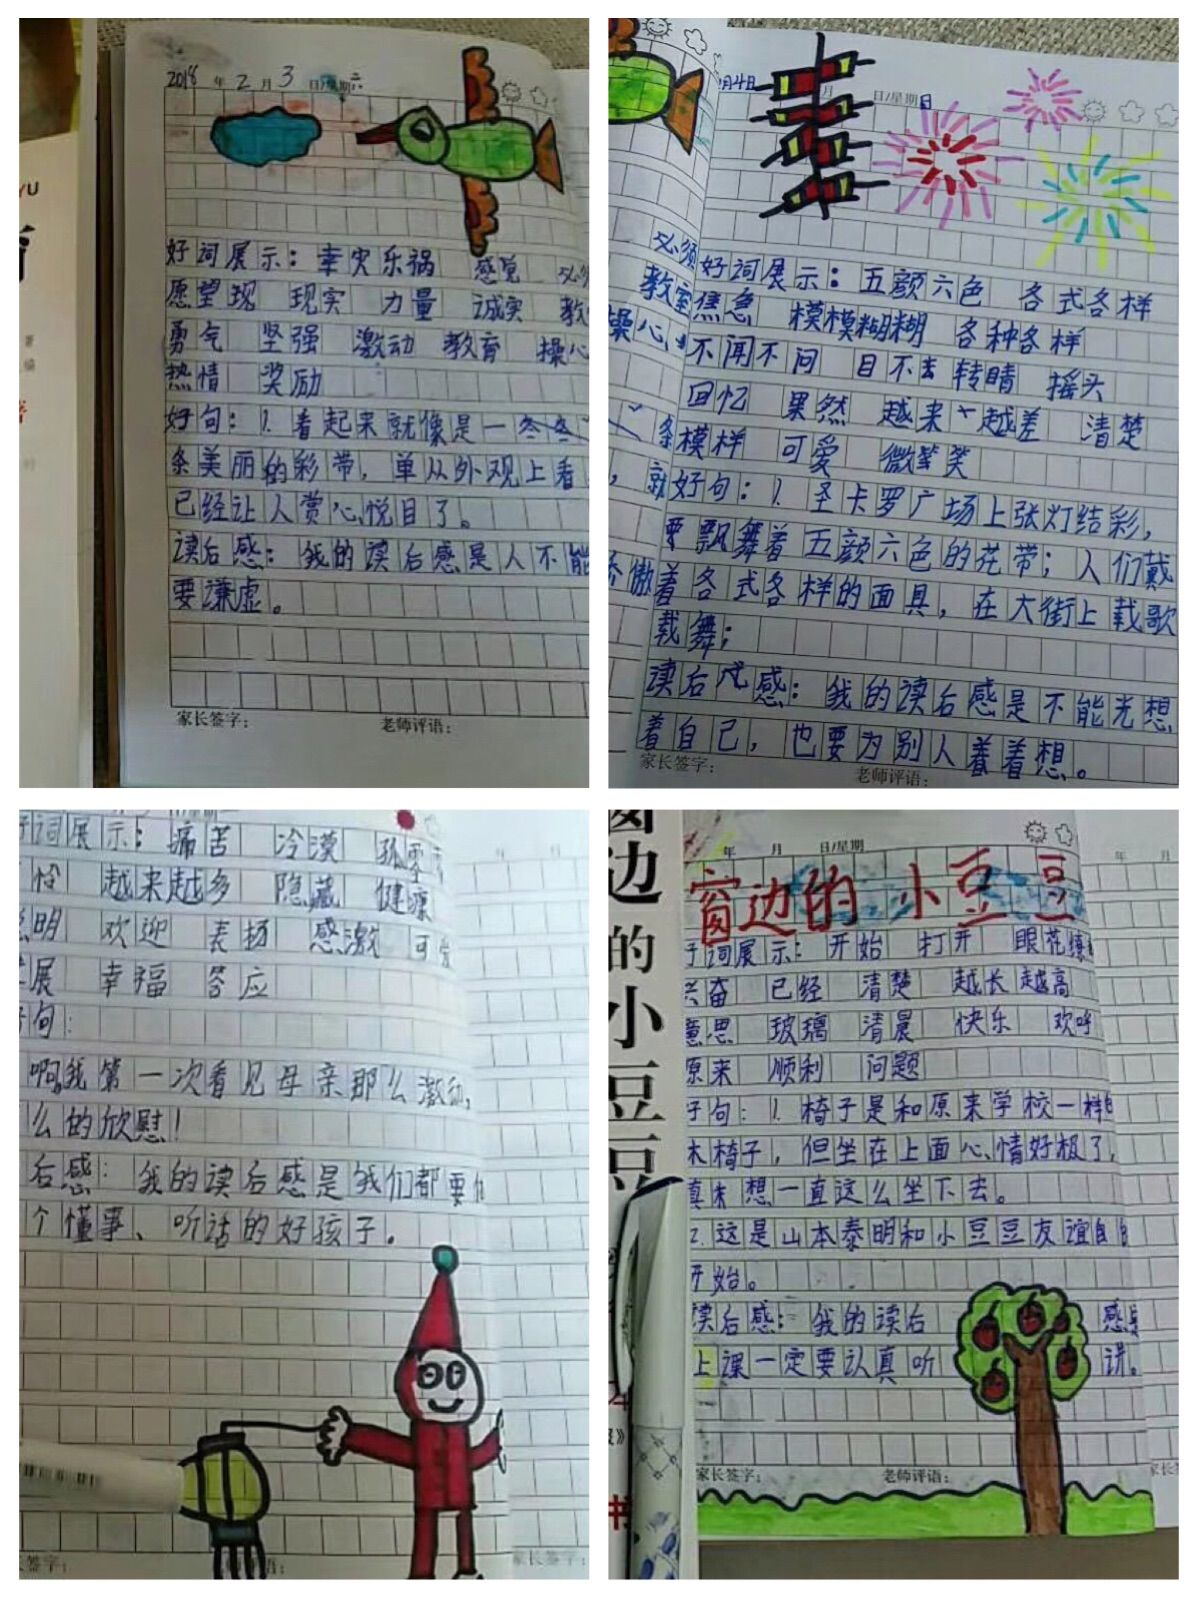 2018年2月3日/星期六
好词展示：幸灾乐祸 感觉 必须
愿望现 现实 力量 诚实 教
勇气 坚强 激动 教育 操心
热情 奖励
好句：1.看起来就像是一
条美丽的彩带，单从外观上看
已经让人赏心悦目了。
读后感：我的读后感是人不能
要谦虚。
家长签字： 老师评语：
月4日 月 日/星期日
必须
教室
操心
好词展示：五颜六色 各式各样
焦急 模模糊糊 各种各样
不闻不问 目不去转睛 摇头
回忆 果然 越来越差 清楚
模样 可爱 微笑
好句：1.圣卡罗广场上张灯结彩，
飘舞着五颜六色的花带；人们戴
着各式各样的面具，在大街上载歌
载舞；
读后感：我的读后感是不能光想
着自己，也要为别人着着想。
家长签字： 老师评语：
词展示：痛苦 冷漠 孤零
怜 越来越多 隐藏 健康
明 欢迎 表扬 感激 可
展 幸福 答应
句：
啊，我第一次看见母亲那么激动，
么的欣慰！
后感：我的读后感是我们都要
个懂事、听话的好孩子。
签字： 评语：
家长签字：
边的小豆豆
年 月 日/星期
窗边的小豆豆
词展示：开始 打开 眼花缭
奋 已经 清楚 越长越高
意思 玻璃 清晨 快乐 欢呼
原来 顺利 问题
句：1.椅子是和原来学校一样
木椅子，但坐在上面心情好极了，
真想一直这么坐下去。
2.这是山本泰明和小豆豆友谊
开始。
读后感：我的读后感
上课一定要认真听讲。
家长签字： 老师评语：